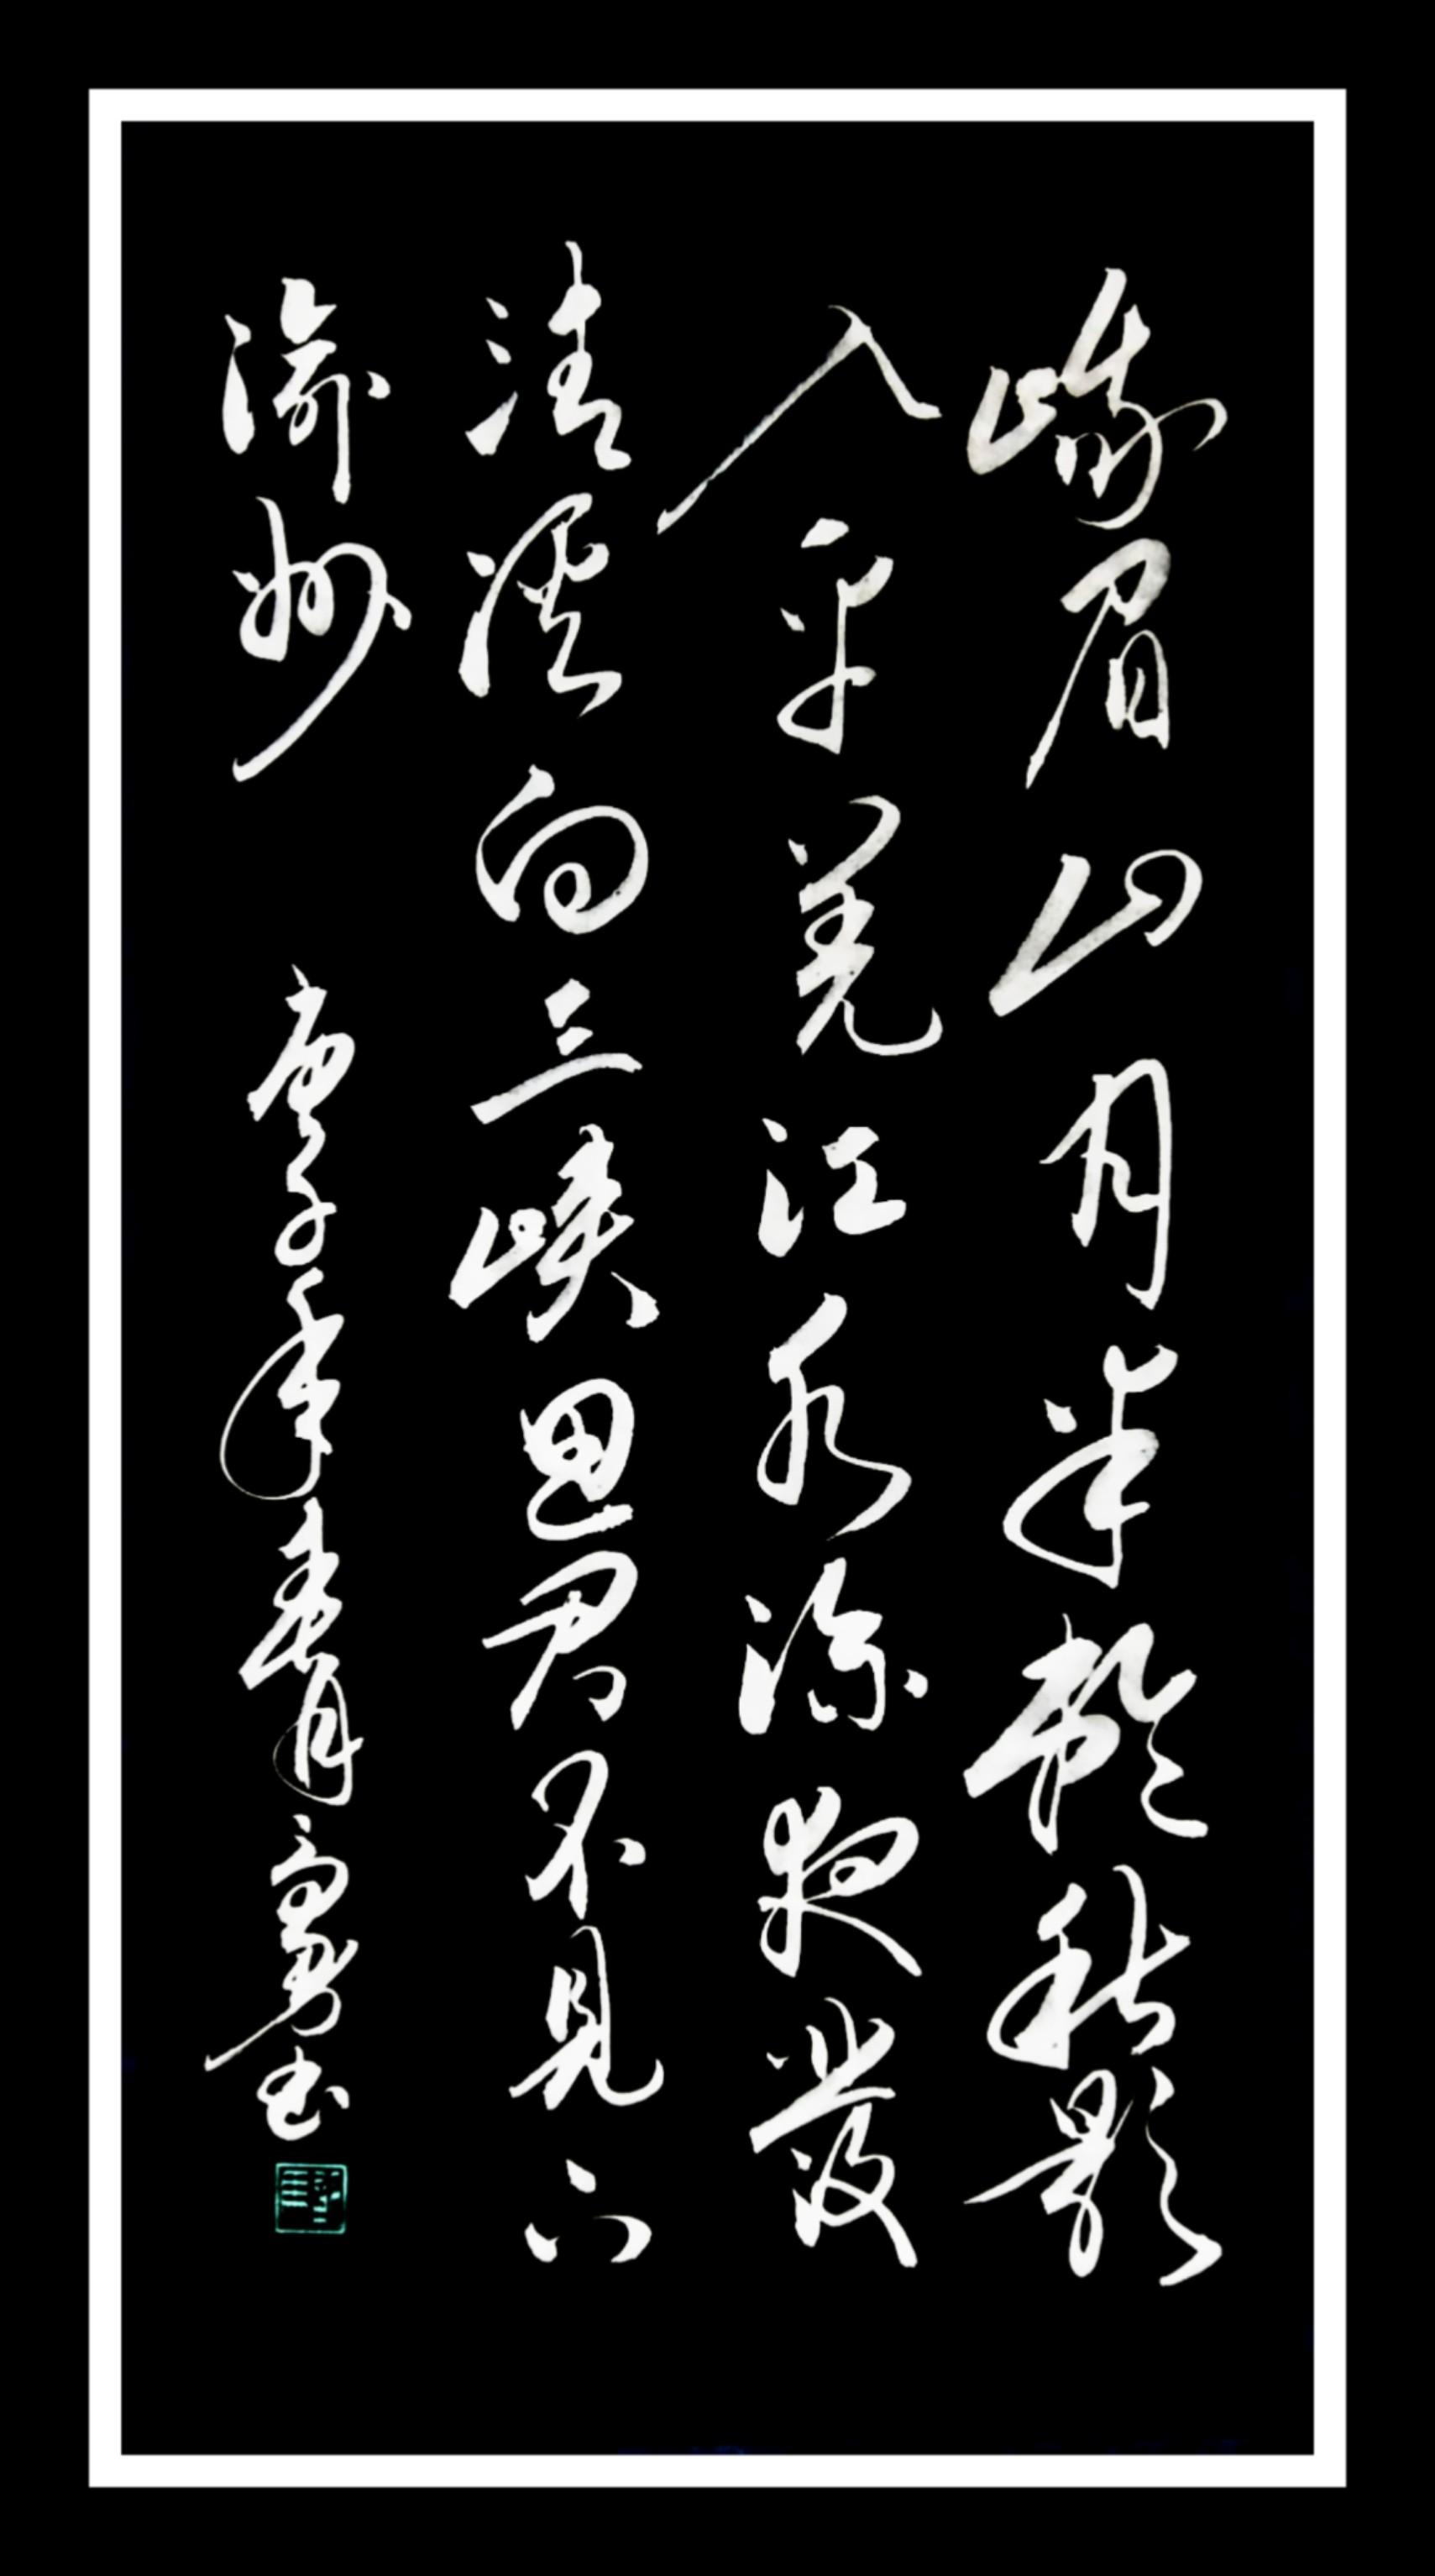 峨眉山月半輪秋影
入平羌江水流夜發
清溪向三峽思君不見下
渝州 庚子年春月 书